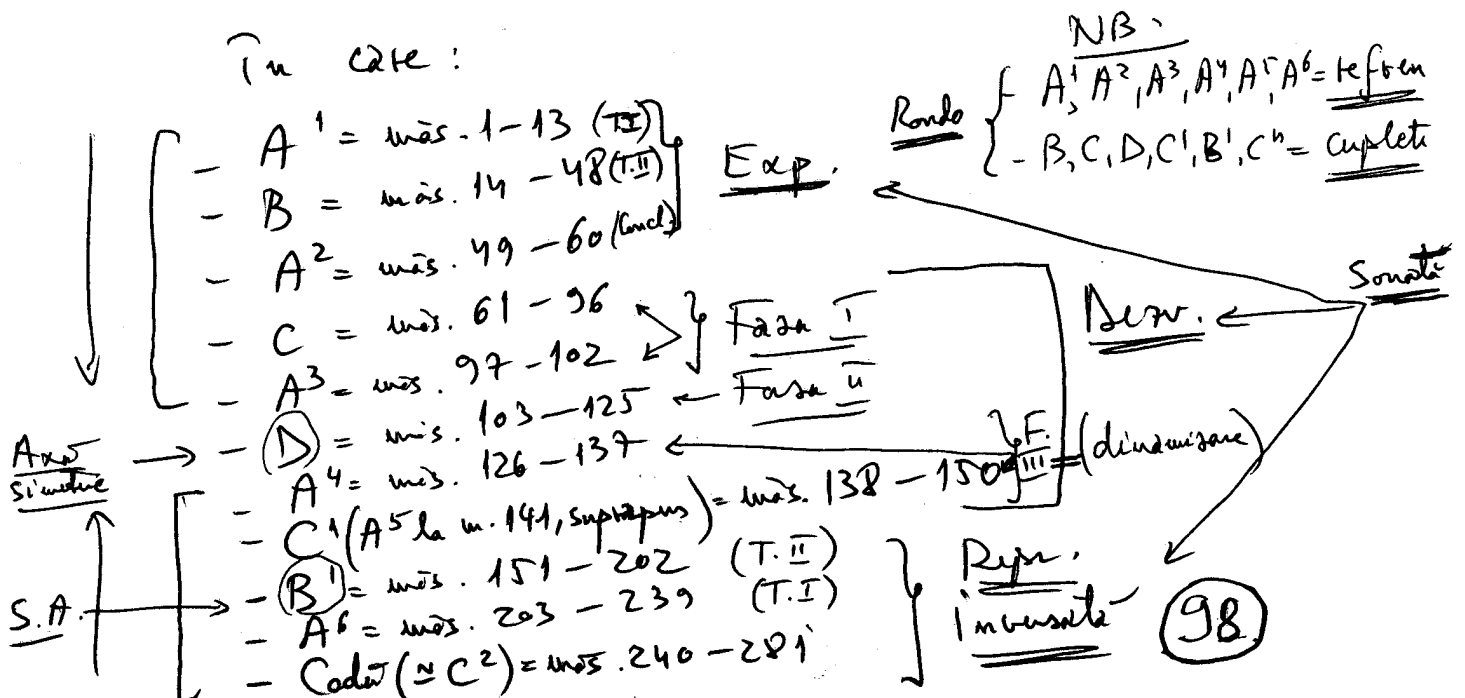 În care :
NB.
Rondo { - A¹, A², A³, A⁴, A⁵, A⁶ = refren
- B, C, D, C', B', C" = cuplete
- A¹ = măs. 1-13 (T.I)
- B = măs. 14 - 48 (T.II)
- A² = măs. 49 - 60 (Concl.)
Exp.
- C = măs. 61 - 96
- A³ = măs. 97 - 102
Faza I
- D = măs. 103 - 125 ← Faza II
Axă simetrie
- A⁴ = măs. 126 - 137
- C¹ (A⁵ la m. 141, suprapus) = măs. 138 - 150
F. III = (dinamizare)
Dezv.
Sonată
- B¹ = măs. 151 - 202 (T.II)
S.A.
- A⁶ = măs. 203 - 239 (T.I)
- Coda (≃ C²) = măs. 240 - 281
Repr. inversată
98